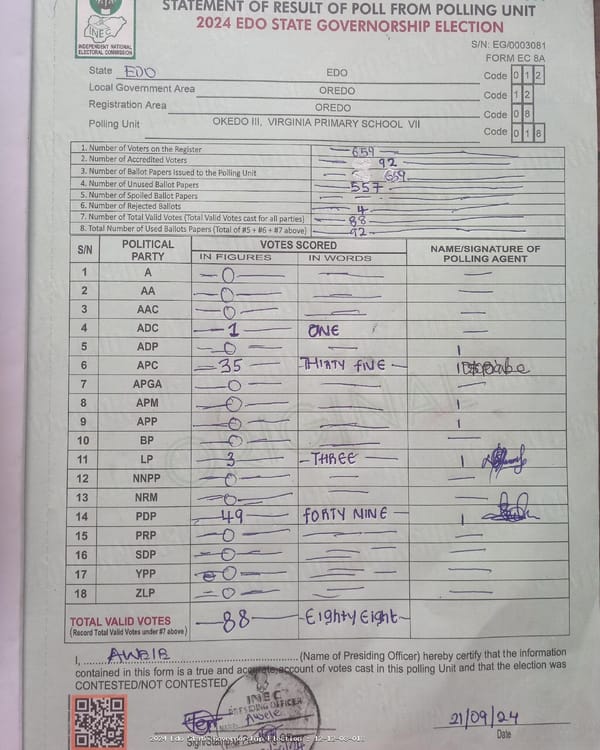 STATEMENT OF RESULT OF POLL FROM POLLING UNIT
2024 EDO STATE GOVERNORSHIP ELECTION
INEC
INDEPENDENT NATIONAL
ELECTORAL COMMISSION
S/N: EG/0003081
FORM EC 8A
State EDO EDO Code 0 1 2
Local Government Area OREDO Code 1 2
Registration Area OREDO Code 0 8
Polling Unit OKEDO III, VIRGINIA PRIMARY SCHOOL VII Code 0 1 8
1. Number of Voters on the Register 659
2. Number of Accredited Voters 92
3. Number of Ballot Papers Issued to the Polling Unit 659
4. Number of Unused Ballot Papers 557
5. Number of Spoiled Ballot Papers
6. Number of Rejected Ballots 4
7. Number of Total Valid Votes (Total Valid Votes cast for all parties) 88
8. Total Number of Used Ballots Papers (Total of #5 + #6 + #7 above) 92
S/N POLITICAL PARTY VOTES SCORED NAME/SIGNATURE OF POLLING AGENT
IN FIGURES IN WORDS
1 A 0
2 AA 0
3 AAC 0
4 ADC 1 ONE
5 ADP 0
6 APC 35 THIRTY FIVE
7 APGA 0
8 APM 0
9 APP 0
10 BP 0
11 LP 3 THREE
12 NNPP 0
13 NRM 0
14 PDP 49 FORTY NINE
15 PRP 0
16 SDP 0
17 YPP 0
18 ZLP 0
TOTAL VALID VOTES 88 Eighty Eight
(Record Total Valid Votes under #7 above)
I, (Name of Presiding Officer) hereby certify that the information
contained in this form is a true and accurate account of votes cast in this polling Unit and that the election was
CONTESTED/NOT CONTESTED
INEC
PRESIDING OFFICER
21/09/24
Date
2024 Edo State Governorship Election - 12-12-08-018